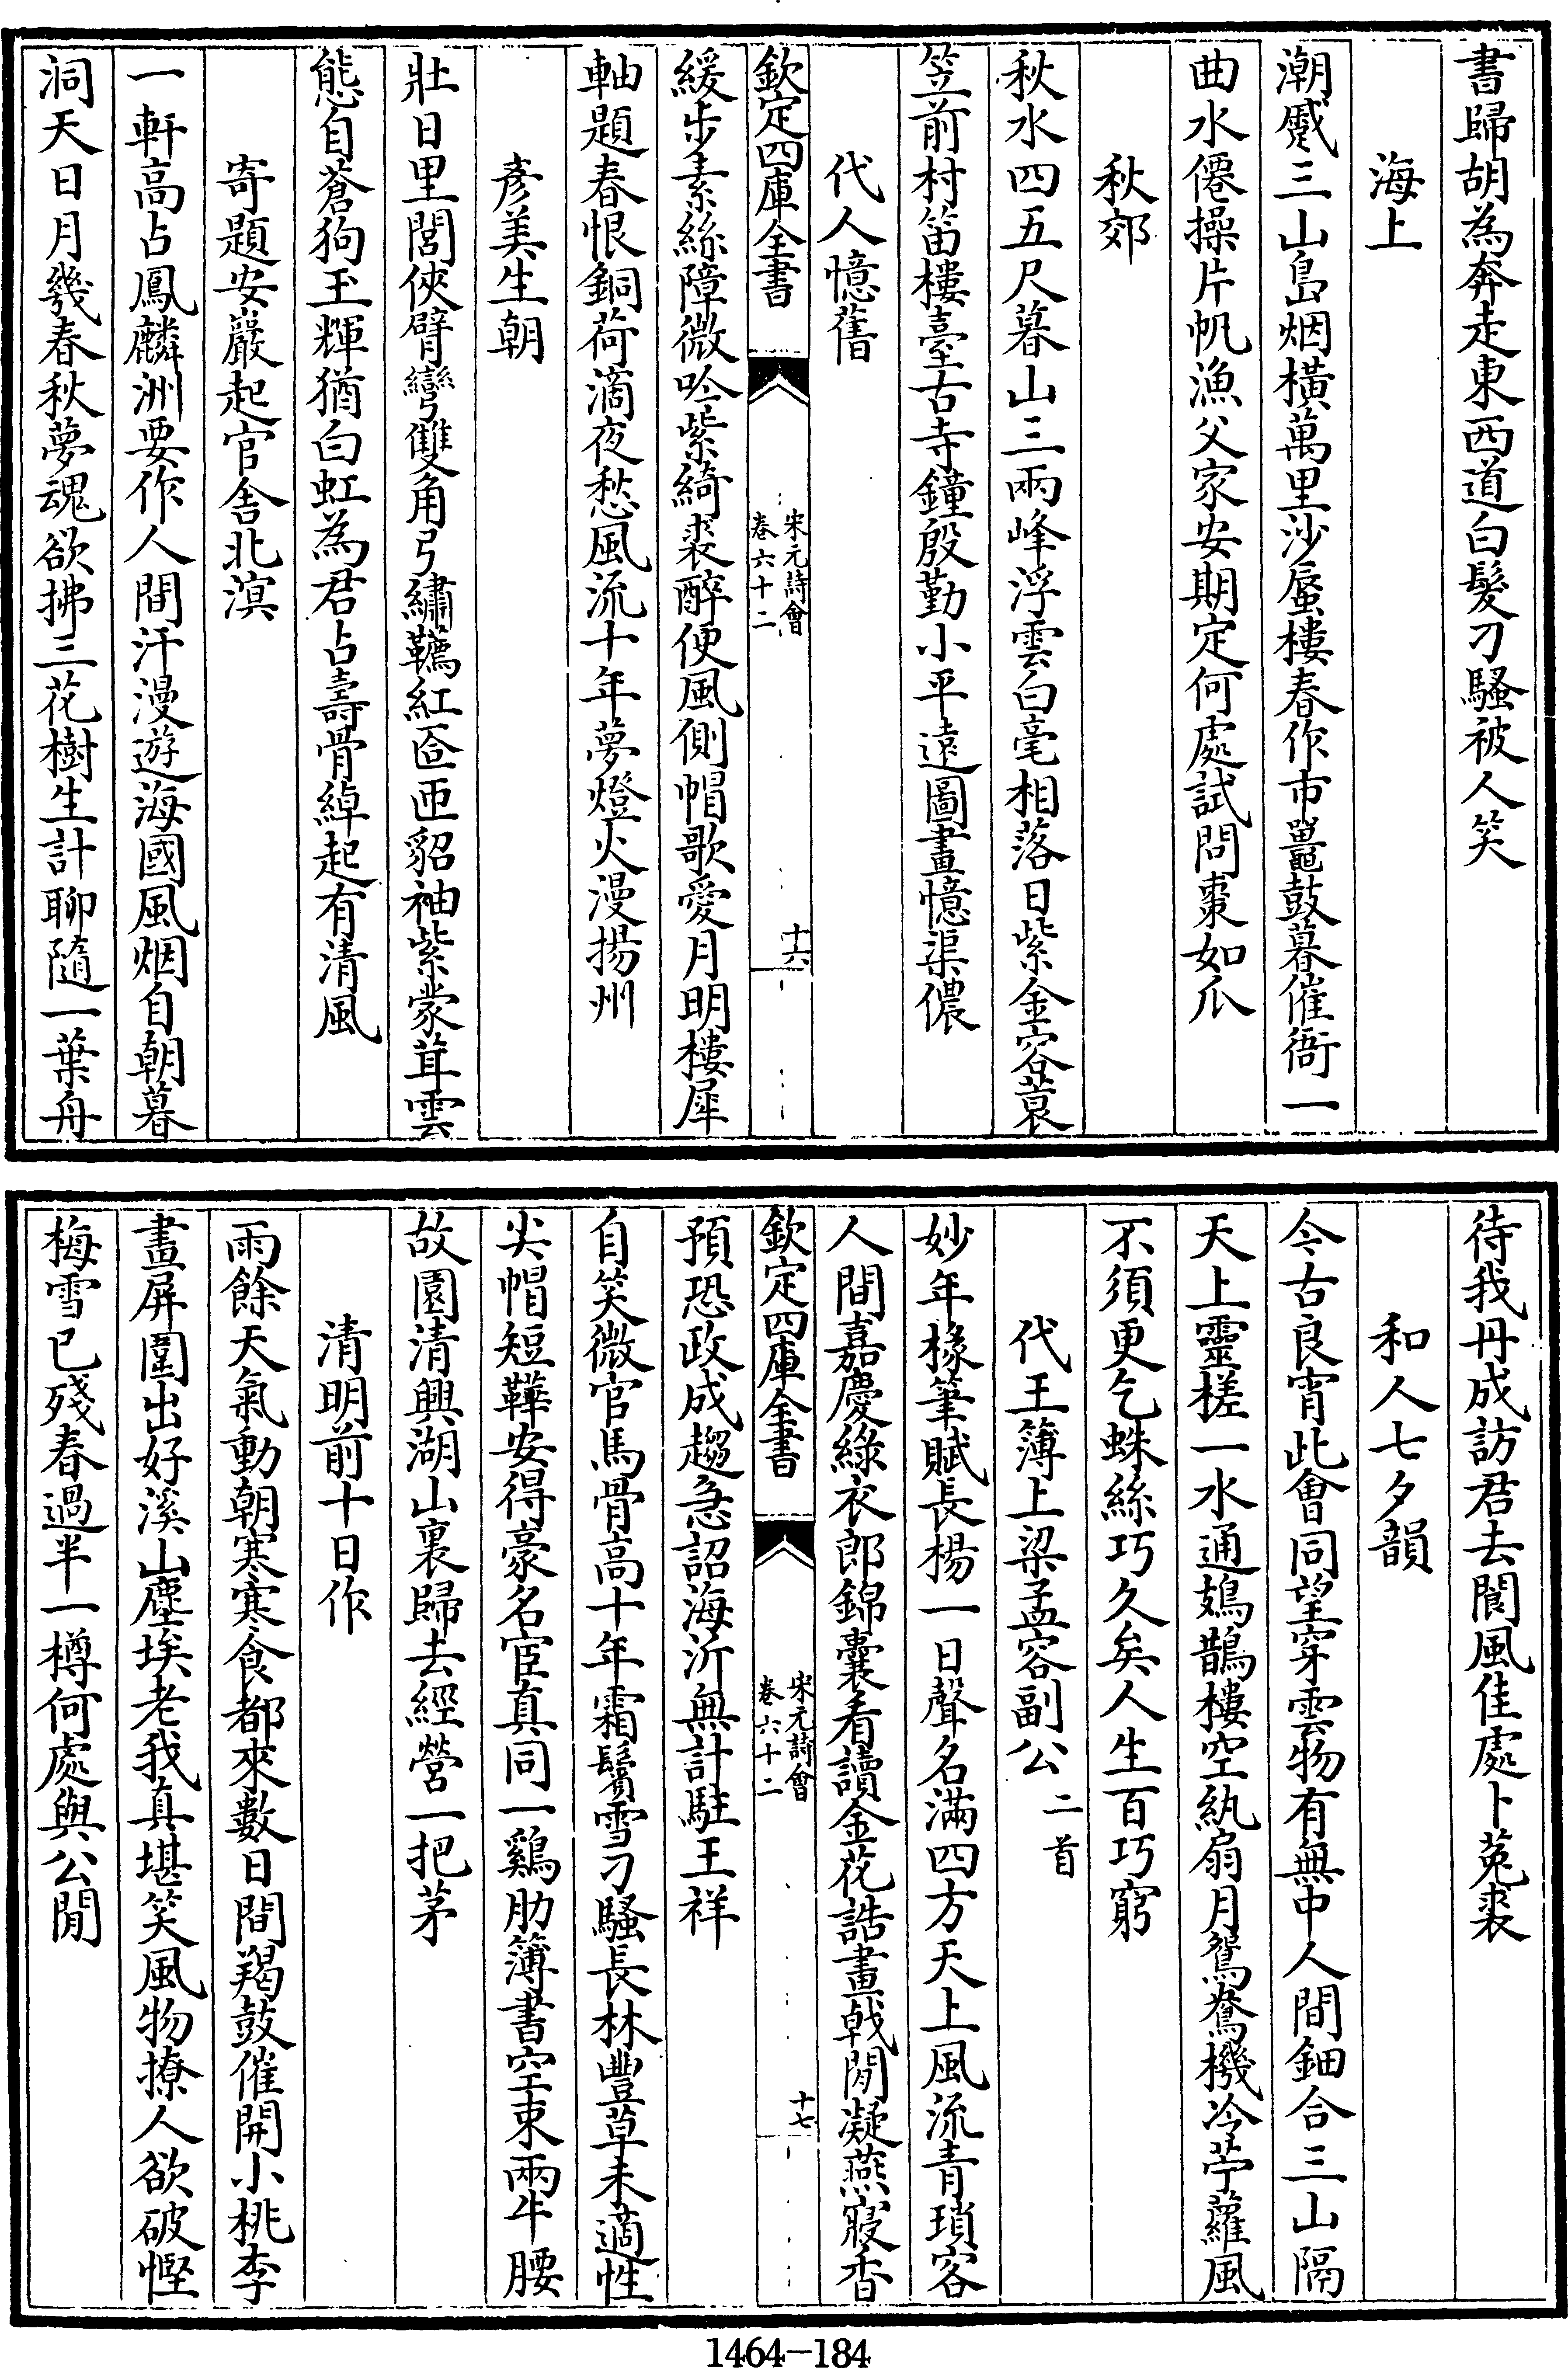 書歸胡為奔走東西道白髮刁騷被人笑
海上
潮蹙三山島烟橫萬里沙蜃樓春作市鼉鼓暮催衙一
曲水僊操片帆漁父家安期定何處試問棗如瓜
秋郊
秋水四五尺暮山三兩峰浮雲白毫相落日紫金容蓑
笠前村笛樓臺古寺鐘殷勤小平遠圖畫憶渠儂
代人憶舊
欽定四庫全書
宋元詩會
卷六十二
十六
緩步素絲障微吟紫綺裘醉便風側帽歌愛月明樓犀
軸題春恨銅荷滴夜愁風流十年夢燈火漫揚州
彥美生朝
壯日里閭俠臂彎雙角弓繡韉紅匼匝貂袖紫蒙茸雲
態自蒼狗玉輝猶白虹為君占壽骨綽起有清風
寄題安巖起官舍北溟
一軒高占鳳麟洲要作人間汗漫遊海國風烟自朝暮
洞天日月幾春秋夢魂欲拂三花樹生計聊隨一葉舟
待我丹成訪君去閬風佳處卜菟裘
和人七夕韻
今古良宵此會同望穿雲物有無中人間鈿合三山隔
天上靈槎一水通鳷鵲樓空紈扇月鴛鴦機冷苧蘿風
不須更乞蛛絲巧久矣人生百巧窮
代王簿上梁孟容副公二首
妙年椽筆賦長楊一日聲名滿四方天上風流青瑣客
人間嘉慶綠衣郎錦囊看讀金花誥畫戟閒凝燕寢香
欽定四庫全書
宋元詩會
卷六十二
十七
預恐政成趨急詔海沂無計駐王祥
自笑微官馬骨高十年霜鬢雪刁騷長林豐草未適性
尖帽短鞾安得豪名宦真同一鷄肋簿書空束兩牛腰
故園清興湖山裏歸去經營一把茅
清明前十日作
雨餘天氣動朝寒寒食都來數日間羯鼓催開小桃李
畫屏圍出好溪山塵埃老我真堪笑風物撩人欲破慳
梅雪已殘春過半一樽何處與公閒
1464-184